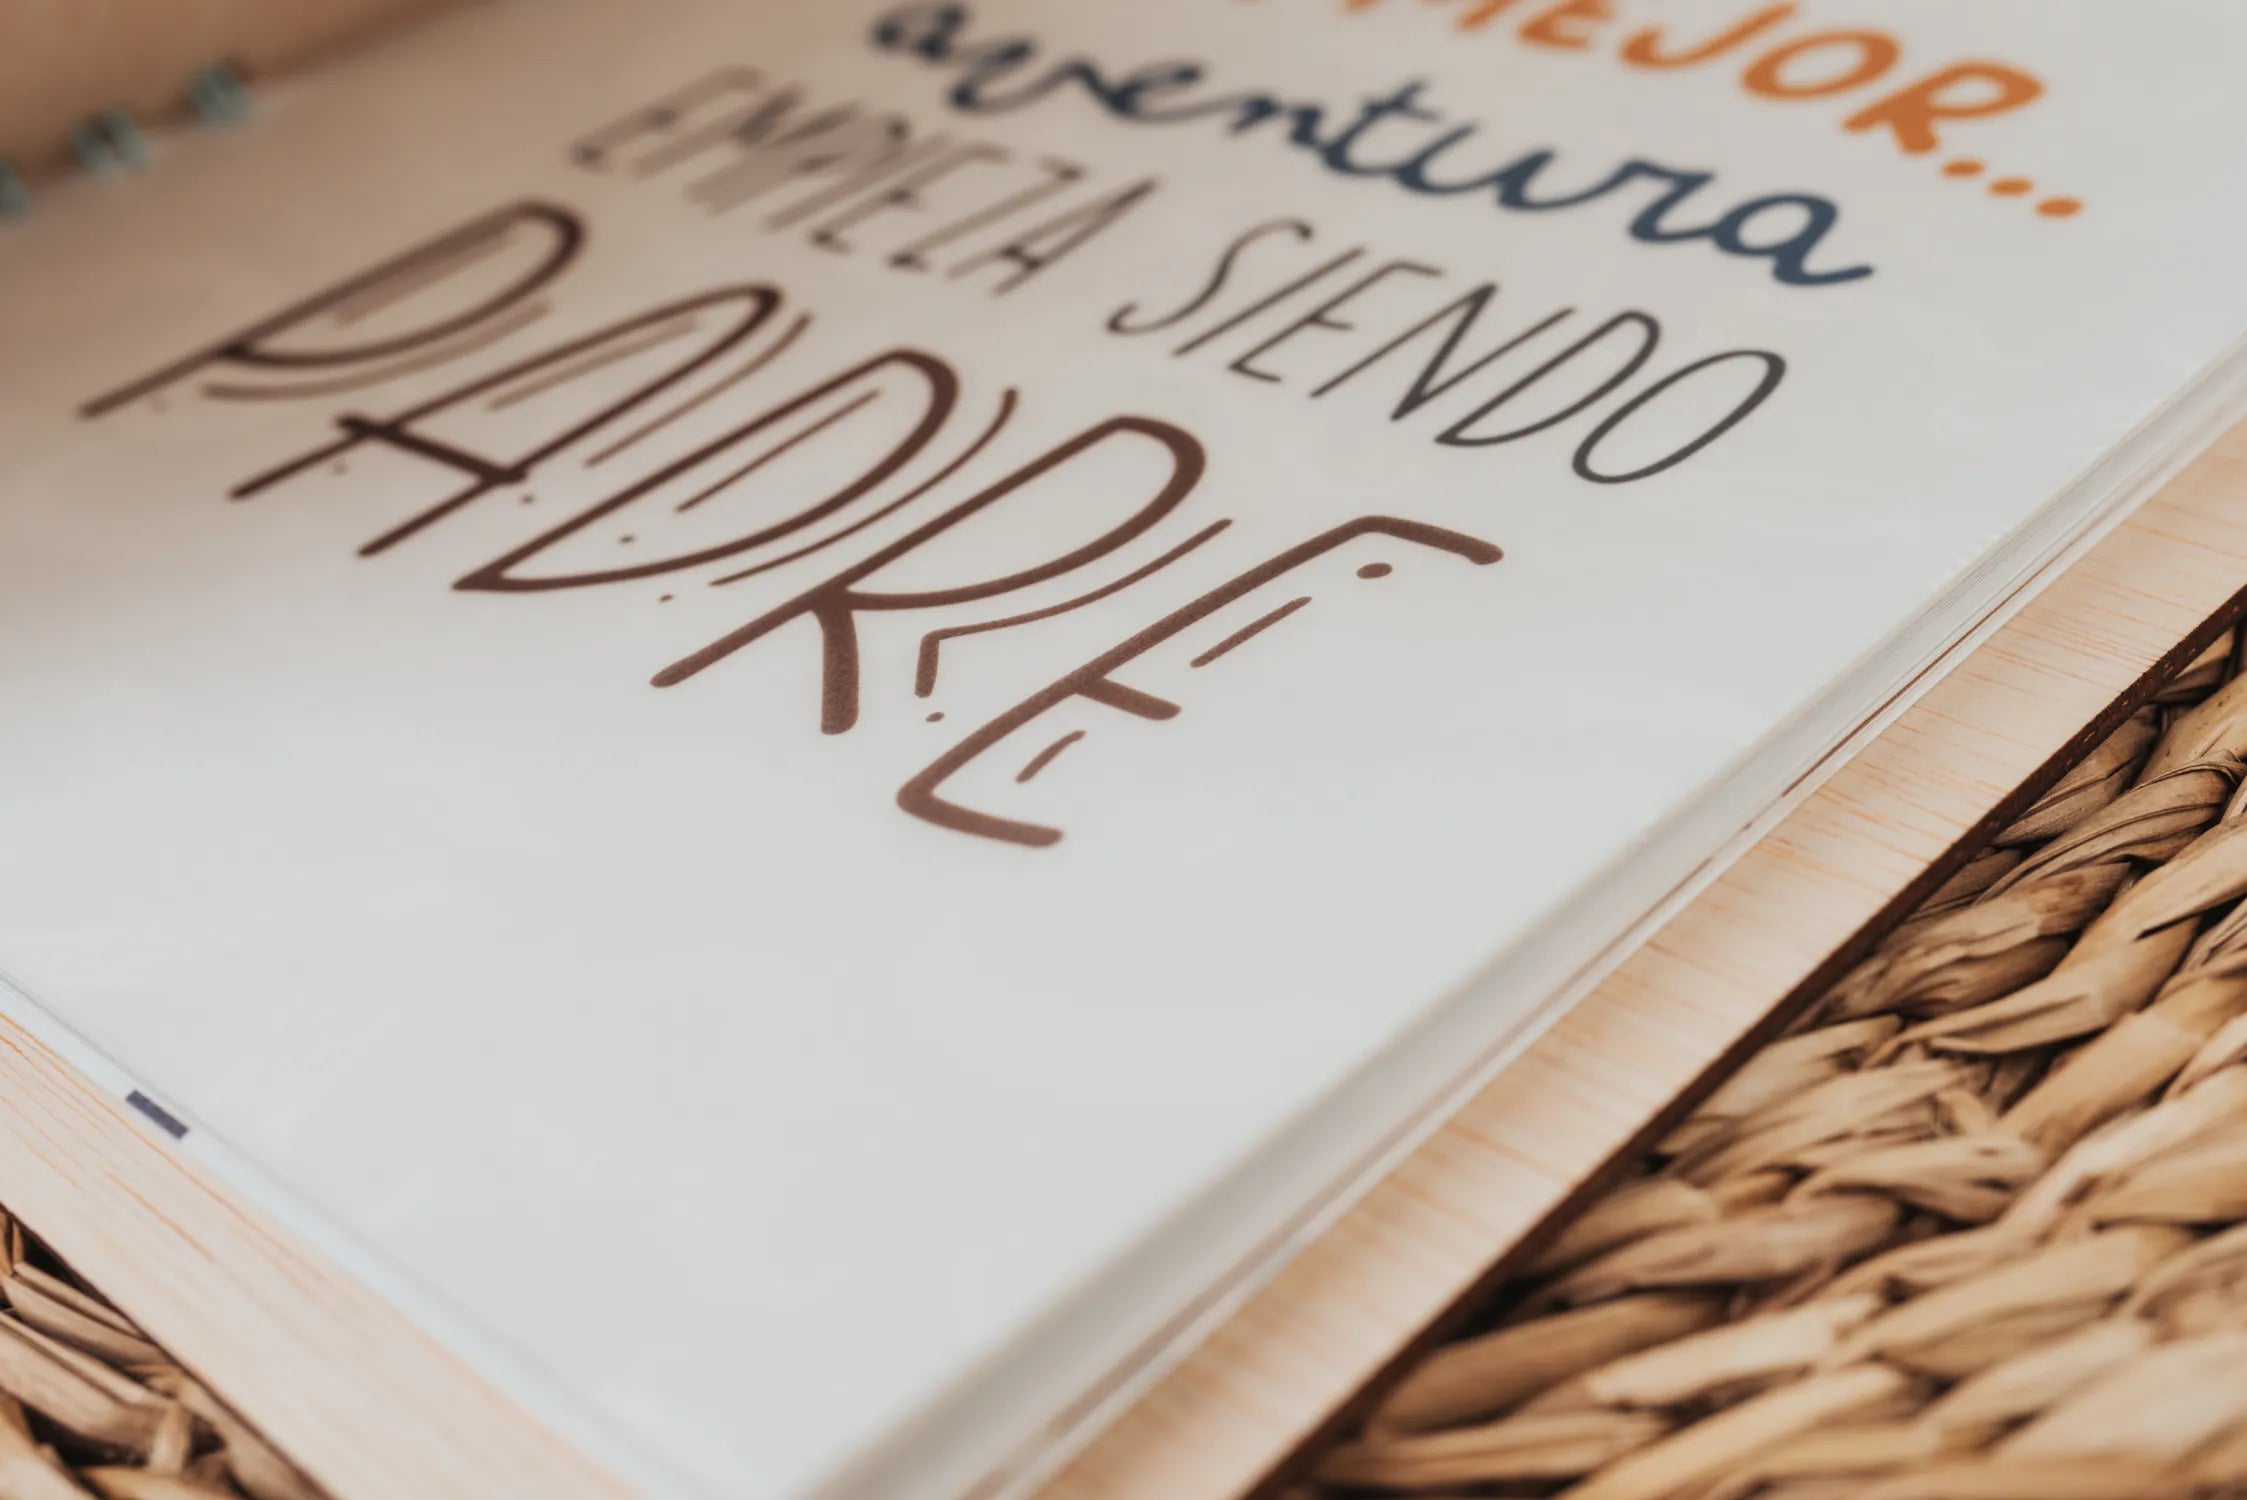 MEJOR...
aventura
EMPIEZA SIENDO
PADRE